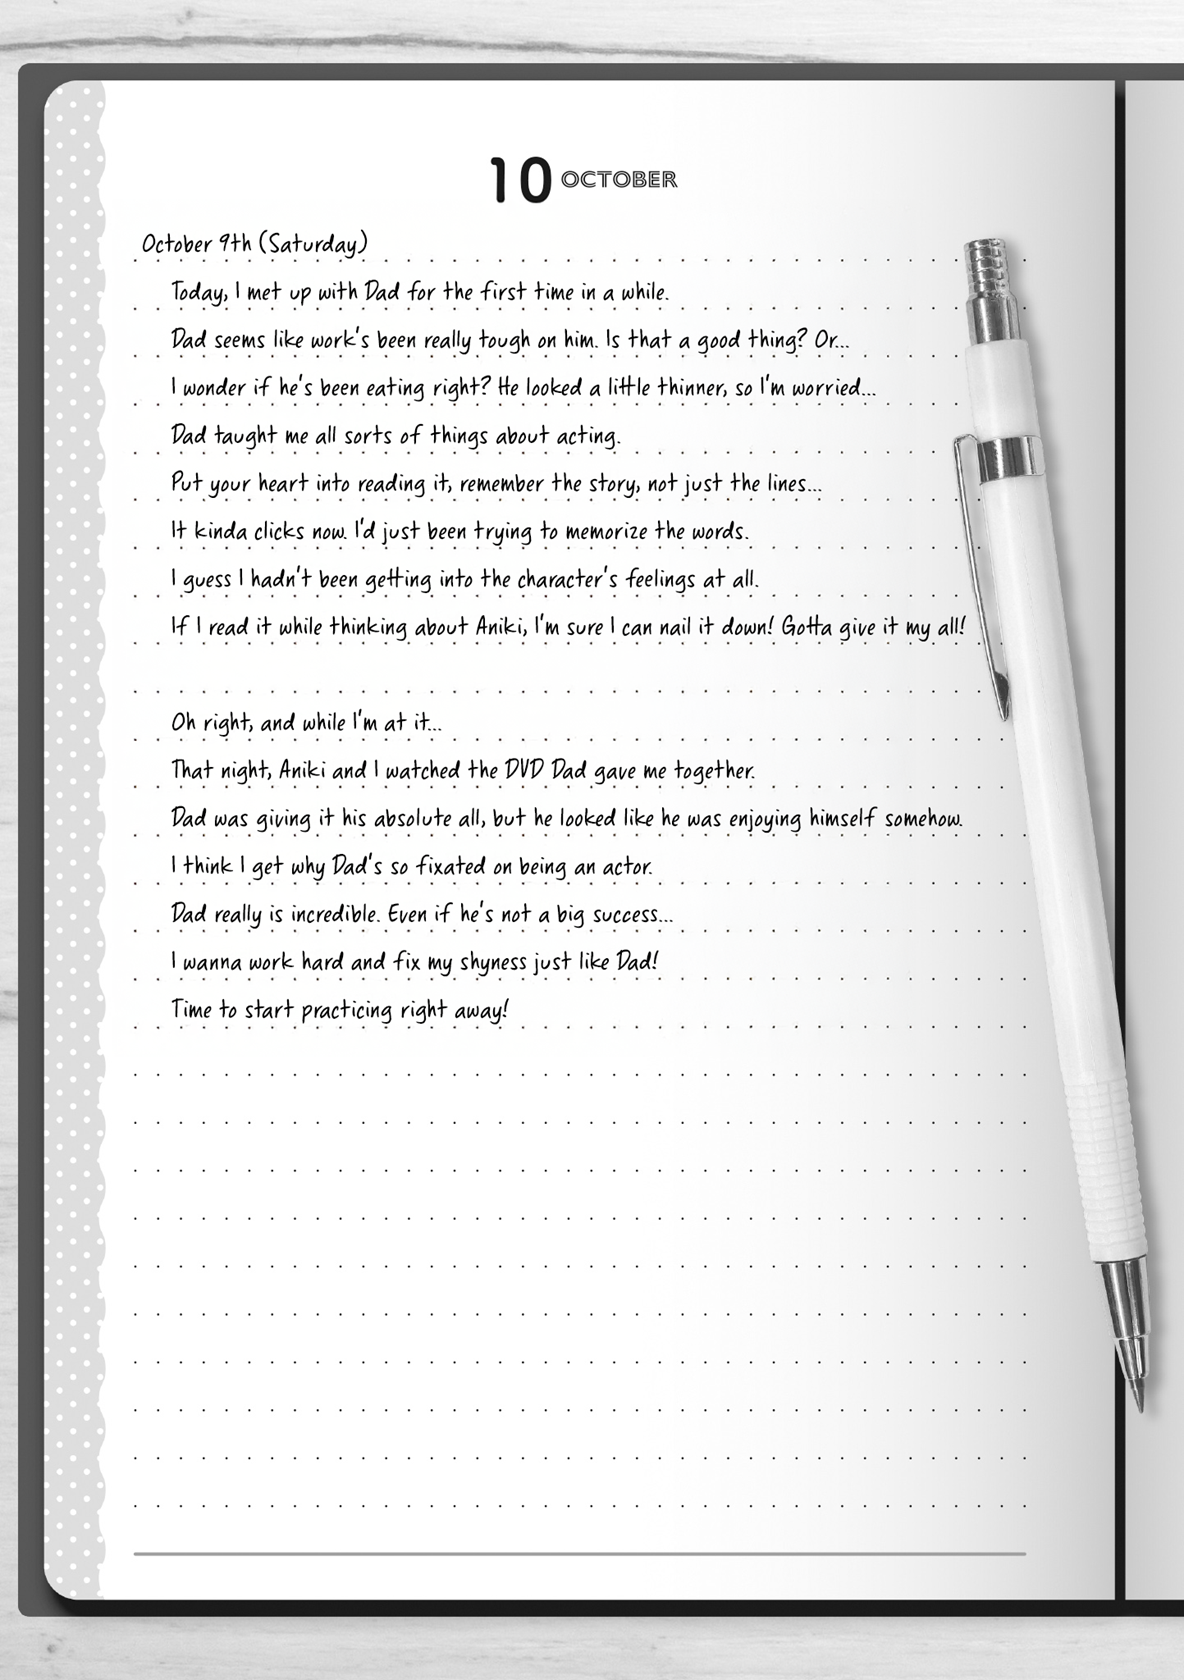 10 OCTOBER
October 9th (Saturday)
Today, I met up with Dad for the first time in a while.
Dad seems like work's been really tough on him. Is that a good thing? Or...
I wonder if he's been eating right? He looked a little thinner, so I'm worried...
Dad taught me all sorts of things about acting.
Put your heart into reading it, remember the story, not just the lines...
It kinda clicks now. I'd just been trying to memorize the words.
I guess I hadn't been getting into the character's feelings at all.
If I read it while thinking about Aniki, I'm sure I can nail it down! Gotta give it my all!
Oh right, and while I'm at it...
That night, Aniki and I watched the DVD Dad gave me together.
Dad was giving it his absolute all, but he looked like he was enjoying himself somehow.
I think I get why Dad's so fixated on being an actor.
Dad really is incredible. Even if he's not a big success...
I wanna work hard and fix my shyness just like Dad!
Time to start practicing right away!